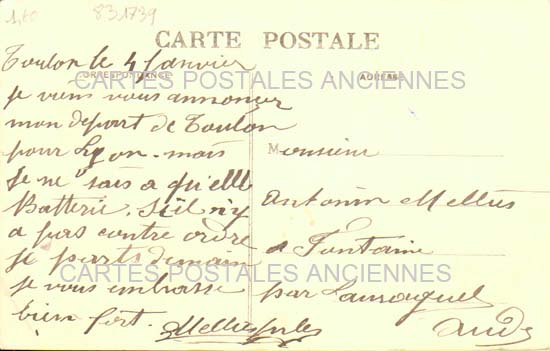 1,60
831739
CARTE POSTALE
CORRESPONDANCE
ADRESSE
CARTES POSTALES ANCIENNES
Toulon le 4 Janvier
je viens vous annoncer
mon depart de Toulon
pour Lyon - mais
je ne sais a qu'elle
Batterie. S'il n'y
a pas contre ordre
je parts demain
je vous embrasse
bien fort.
Monsieur
Antonin
a Fontaine
par
Aude
CARTES POSTALES ANCIENNES